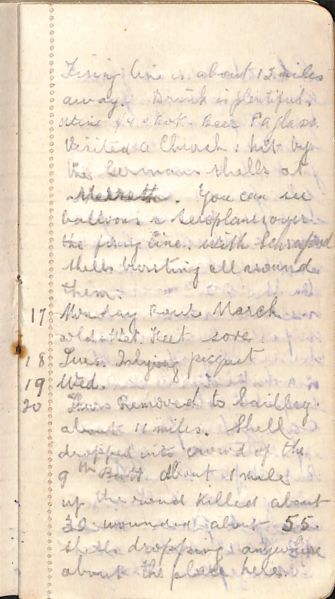 Firing line is about 12 miles
away. Drink is plentiful
wine 1f. Bot. Beer
Visited a Church : hit by
the German shells at
You can see
balloons & aeroplanes over
the firing line with Schrapnel
shells bursting all around
them.
17 Monday Route March
Hot. Feet sore
18 Tues. Inlying picquet
19 Wed.
20 Thurs Removed to Sailley
about 11 miles. Shell
dropped into crowd of the
9th Batt about 1 mile
up the road killed about
30 wounded about 55
shells dropping anywhere
about the place here.